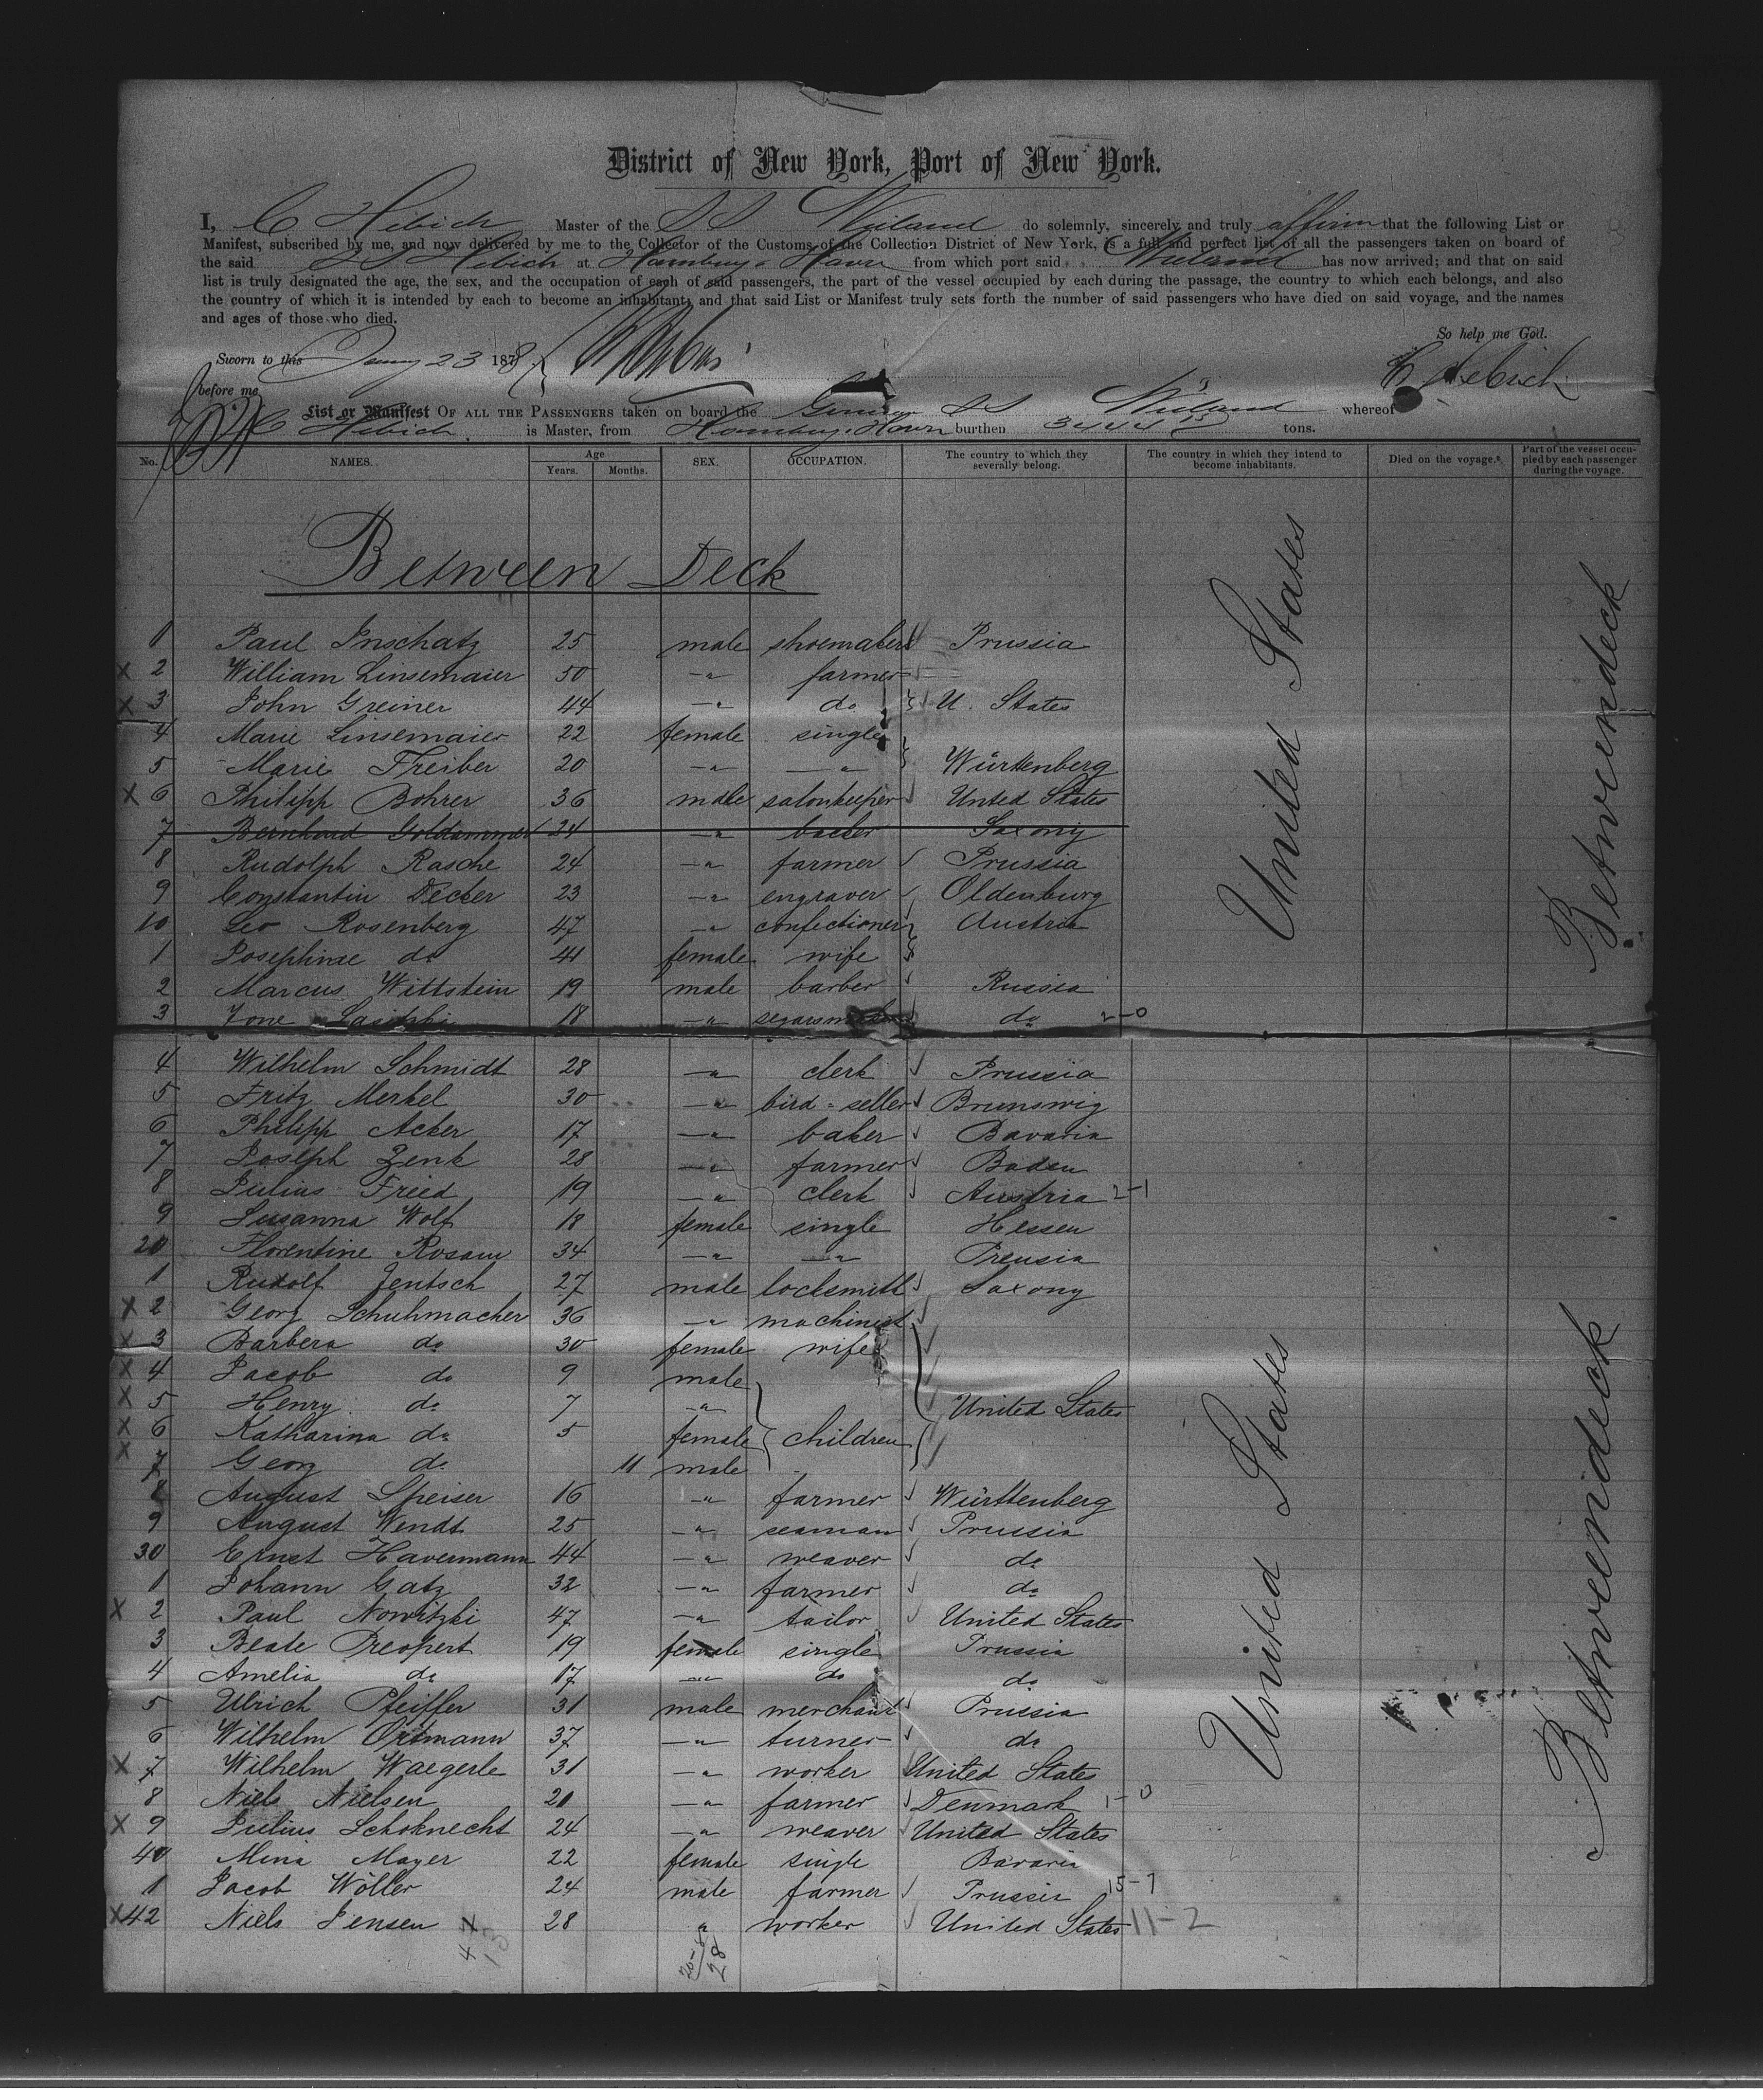 District of New York, Port of New York.
I, C Hebich Master of the SS Wieland do solemnly, sincerely and truly affirm that the following List or
Manifest, subscribed by me, and now delivered by me to the Collector of the Customs of the Collection District of New York, is a full and perfect list of all the passengers taken on board of
the said SS Hebich at Hamburg & Havre from which port said Wieland has now arrived; and that on said
list is truly designated the age, the sex, and the occupation of each of said passengers, the part of the vessel occupied by each during the passage, the country to which each belongs, and also
the country of which it is intended by each to become an inhabitant; and that said List or Manifest truly sets forth the number of said passengers who have died on said voyage, and the names
and ages of those who died.
So help me God.
Sworn to this 23 1878
before me
C Hebich
List or Manifest OF ALL THE PASSENGERS taken on board the German SS Wieland whereof
C Hebich is Master, from Hamburg & Havre burthen tons.
No. NAMES. Age Years. Months. SEX. OCCUPATION. The country to which they severally belong. The country in which they intend to become inhabitants. Died on the voyage.* Part of the vessel occupied by each passenger during the voyage.
Between Deck
1 Paul Inschatz 25 male shoemaker Prussia
X 2 William Linsemaier 50 -"- farmer
X 3 John Greiner 44 -"- do U. States
4 Marie Linsemaier 22 female single
5 Marie Freiber 20 -"- -"- Würtenberg
X 6 Philipp Bohrer 36 male saloonkeeper United States
7 Bernhard Goldammer 24 -"- baker Saxony
8 Rudolph Rasche 24 -"- farmer Prussia
9 Constantin Decker 23 -"- engraver Oldenburg
10 Leo Rosenberg 47 -"- confectioner Austria
1 Josephine do 41 female wife
2 Marcus Wittstein 19 male barber Russia
3 18 -"- do 2-0
4 Wilhelm Schmidt 28 -"- clerk Prussia
5 Fritz Merkel 30 -"- bird-seller Brunswig
6 Philipp Acker 17 -"- baker Bavaria
7 Joseph Zenk 28 -"- farmer Baden
8 Julius Fried 19 -"- clerk Austria 2-1
9 Susanna Wolf 18 female single Hessen
20 Florentine Rosam 34 -"- -"- Preusia
1 Rudolf Jentsch 27 male locksmith Saxony
X 2 Georg Schuhmacher 36 -"- machinist
X 3 Barbera do 30 female wife
X 4 Jacob do 9 male
X 5 Henry do 7 -"- United States
X 6 Katharina do 5 female children
X 7 Georg do 11 male
8 August Speiser 16 -"- farmer Württenberg
9 August Wendt 25 -"- seaman Prussia
30 Ernst Havermann 44 -"- weaver do
1 Johann Gatz 32 -"- farmer do
X 2 Paul Nowitzki 47 -"- tailor United States
3 Beate Preopert 19 female single Prussia
4 Amelia do 17 -"- do do
5 Ulrich Pfeiffer 31 male merchant Prussia
6 Wilhelm Ortmann 37 -"- turner do
X 7 Wilhelm Waegerle 31 -"- worker United States
8 Niels Nielsen 20 -"- farmer Denmark 1-0
X 9 Julius Schoknecht 24 -"- weaver United States
40 Mina Mayer 22 female single Bavaria
1 Jacob Wöller 24 male farmer Prussia 15-7
X 42 Niels Jensen 28 " worker United States 11-2
United States
United States
Betweendeck
Betweendeck
28